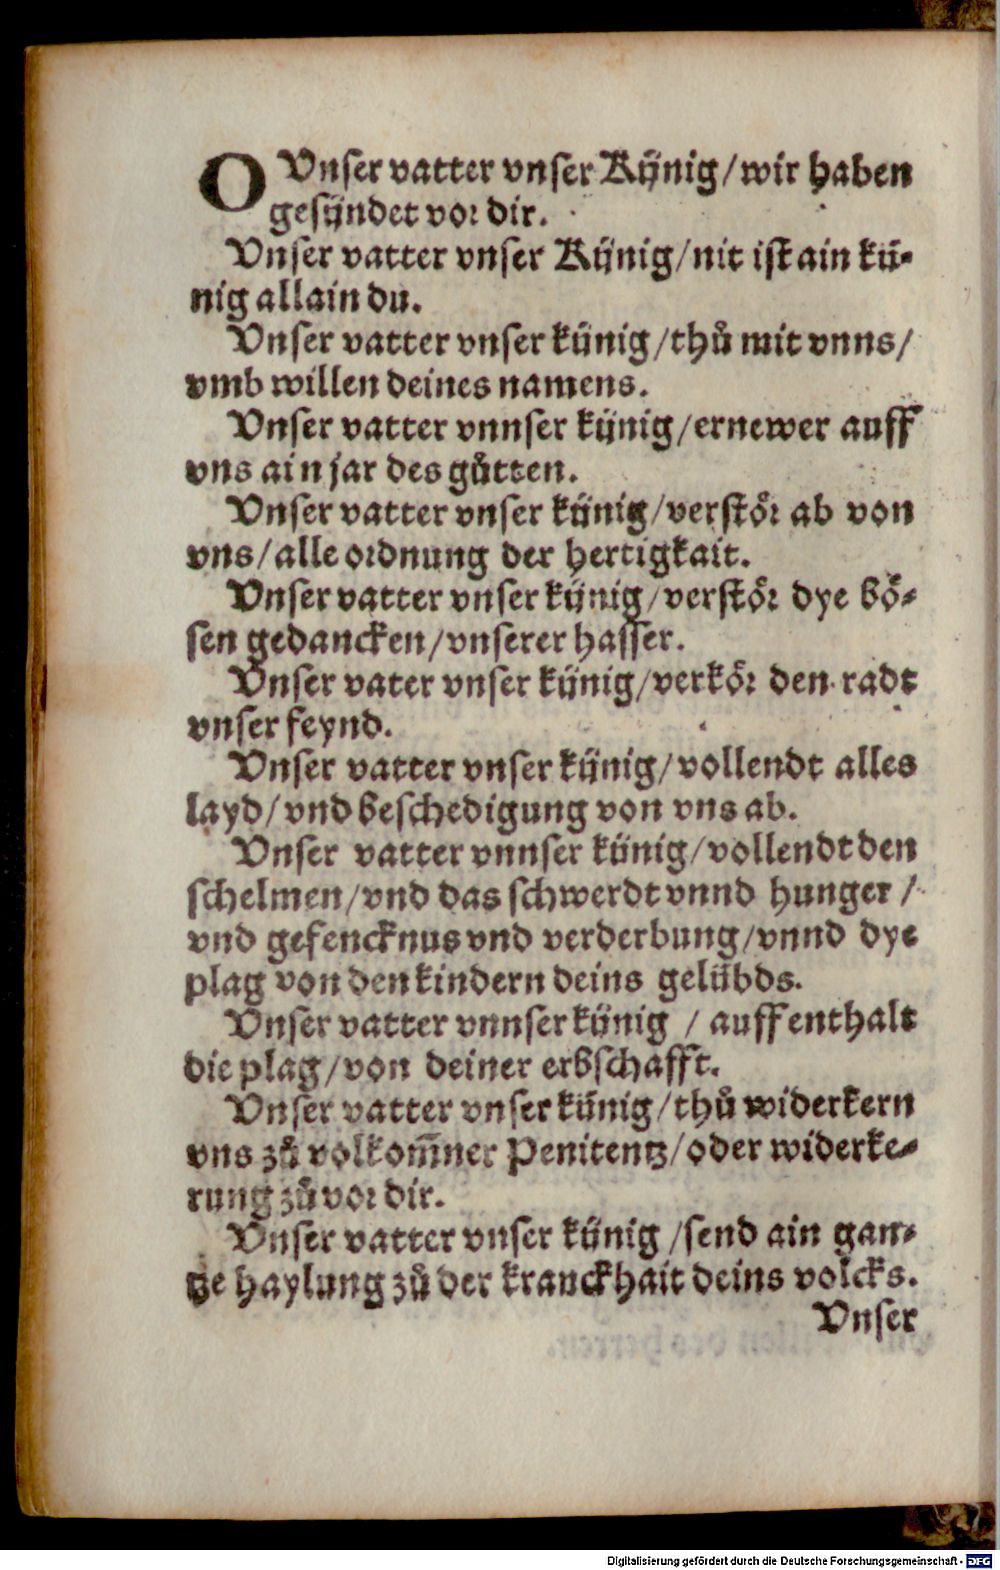 O Vnser vatter vnser Künig/wir haben
gesündet vor dir.
Vnser vatter vnser Künig/nit ist ain kü-
nig allain du.
Vnser vatter vnser künig/thů mit vnns/
vmb willen deines namens.
Vnser vatter vnnser künig/ernewer auff
vns ain jar des gůtten.
Vnser vatter vnser künig/verstör ab von
vns/alle ordnung der hertigkait.
Vnser vatter vnser künig/verstör dye bö-
sen gedancken/vnserer hasser.
Vnser vater vnser künig/verkör den radt
vnser feynd.
Vnser vatter vnser künig/vollendt alles
layd/vnd beschedigung von vns ab.
Vnser vatter vnnser künig/vollendt den
schelmen/vnd das schwerdt vnnd hunger/
vnd gefencknus vnd verderbung/vnnd dye
plag von den kindern deins gelübds.
Vnser vatter vnnser künig / auffenthalt
die plag/von deiner erbschafft.
Vnser vatter vnser künig/thů widerkern
vns zů volkom̃ner Penitentz/oder widerke-
rung zů vor dir.
Vnser vatter vnser künig /send ain gan-
tze haylung zů der kranckhait deins volcks.
Vnser
Digitalisierung gefördert durch die Deutsche Forschungsgemeinschaft - DFG